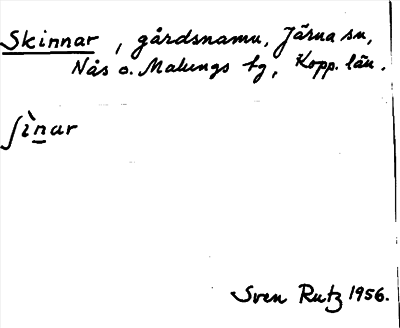 Skinnar, gårdsnamn, Järna sn,
Nås o. Malungs tg, Kopp. län.
ʃìnar
Sven Rutz 1956.